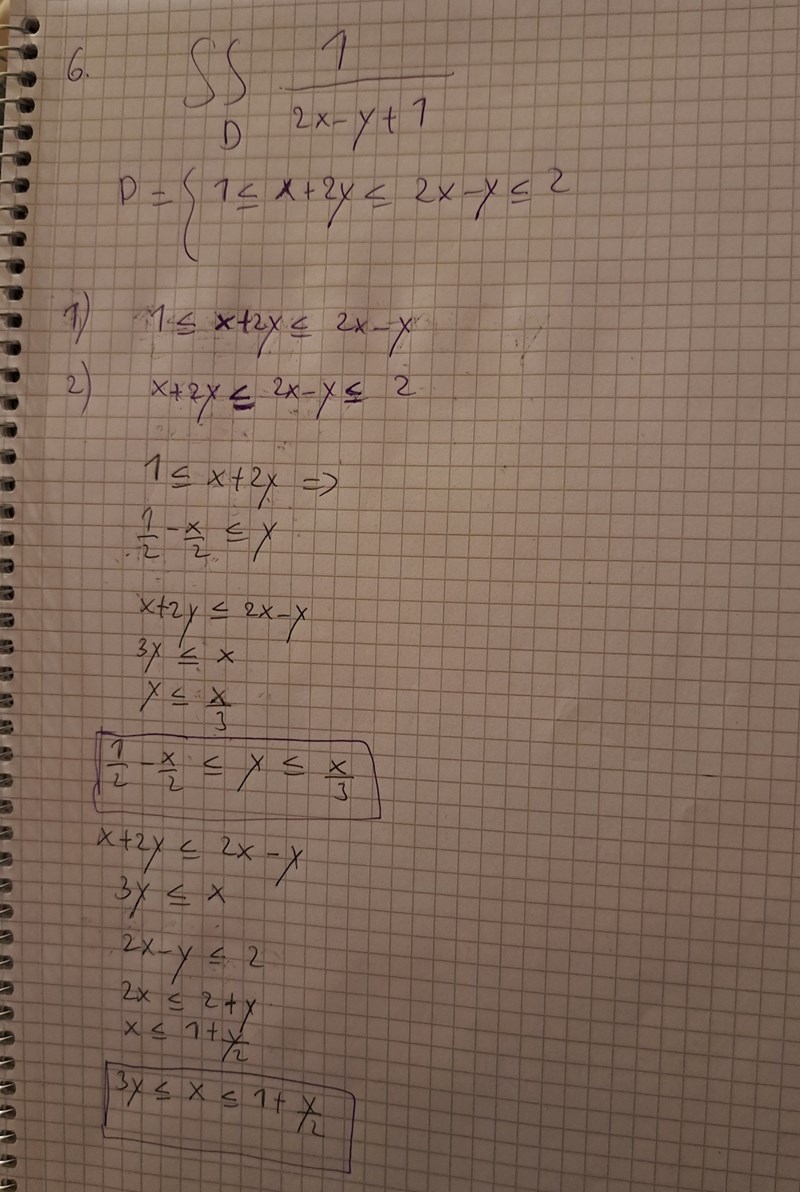 6. ∬ 1/(2x-y+1)
D
D = { 1 ≤ x+2y ≤ 2x-y ≤ 2
1) 1 ≤ x+2y ≤ 2x-y
2) x+2y ≤ 2x-y ≤ 2
1 ≤ x+2y ⇒
1/2 - x/2 ≤ y
x+2y ≤ 2x-y
3y ≤ x
y ≤ x/3
1/2 - x/2 ≤ y ≤ x/3
x+2y ≤ 2x-y
3y ≤ x
2x-y ≤ 2
2x ≤ 2+y
x ≤ 1+y/2
3y ≤ x ≤ 1+y/2